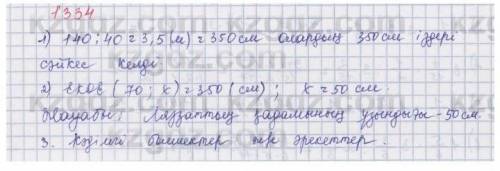 1334
1) 140 : 40 = 3,5 (м) = 350 см олардың 350 см іздері
сәйкес келді
2) ЕКОЕ ( 70 ; x ) = 350 ( см ) ; x = 50 см.
Жауабы: Ляззаттың қадамының ұзындығы - 50 см.
3. Кәдімгі бөлшектер